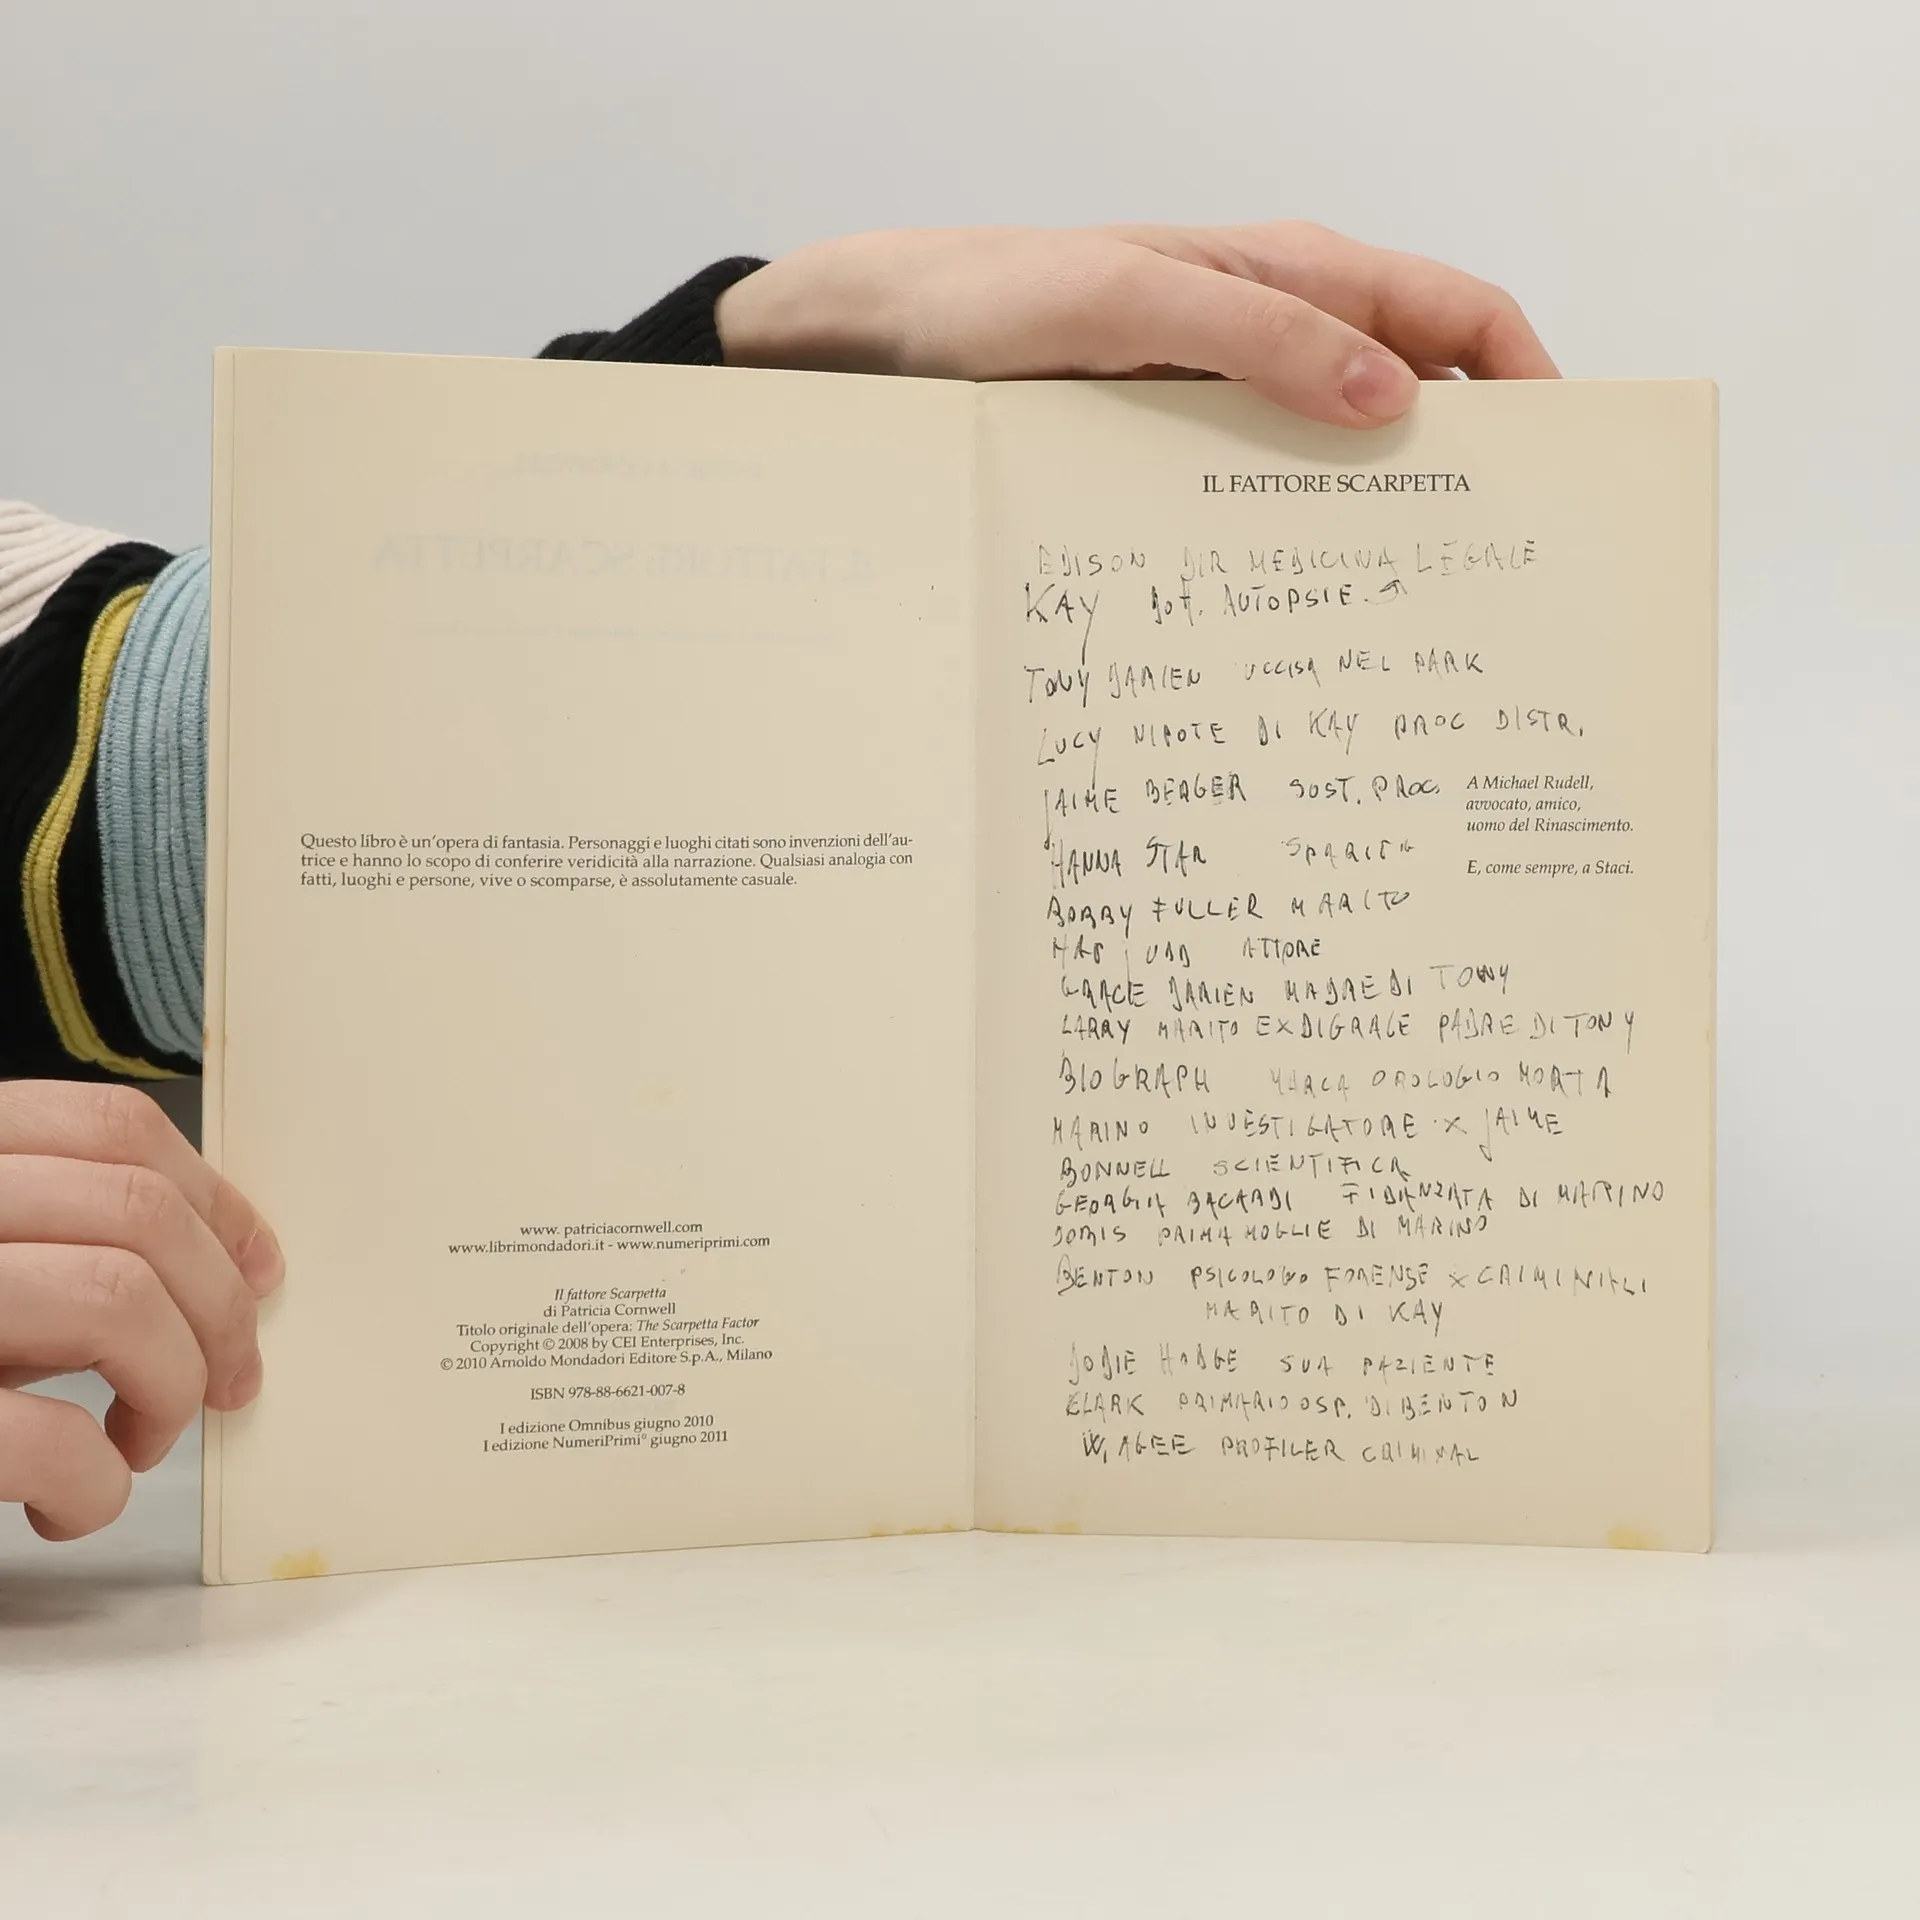 Questo libro è un'opera di fantasia. Personaggi e luoghi citati sono invenzioni dell'au-
trice e hanno lo scopo di conferire veridicità alla narrazione. Qualsiasi analogia con
fatti, luoghi e persone, vive o scomparse, è assolutamente casuale.
www. patriciacornwell.com
www.librimondadori.it - www.numeriprimi.com
Il fattore Scarpetta
di Patricia Cornwell
Titolo originale dell'opera: The Scarpetta Factor
Copyright © 2008 by CEI Enterprises, Inc.
© 2010 Arnoldo Mondadori Editore S.p.A., Milano
ISBN 978-88-6621-007-8
I edizione Omnibus giugno 2010
I edizione NumeriPrimi° giugno 2011
IL FATTORE SCARPETTA
EDISON DIR MEDICINA LEGALE
KAY DOT. AUTOPSIE.
TONY DARIEN UCCISA NEL PARK
LUCY NIPOTE DI KAY PROC DISTR.
JAIME BERGER SOST. PROC.
HANNA STAR
BOBBY FULLER MARITO
HAP JUDD ATTORE
GRACE DARIEN MADRE DI TONY
LARRY MARITO EX DI GRACE PADRE DI TONY
BIOGRAPH MARCA OROLOGIO MORTA
MARINO INVESTIGATORE X JAIME
BONNELL SCIENTIFICA
GEORGIA BACARDI FIDANZATA DI MARINO
DORIS PRIMA MOGLIE DI MARINO
BENTON PSICOLOGO FORENSE X CRIMINALI
MARITO DI KAY
DODIE HODGE SUA PAZIENTE
CLARK PRIMARIO OSP. DI BENTON
W, AGEE PROFILER CRIMINAL
A Michael Rudell,
avvocato, amico,
uomo del Rinascimento.
E, come sempre, a Staci.